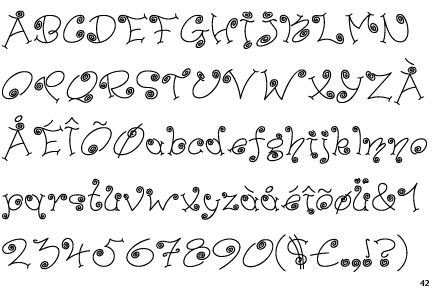 ABCDEFGHIJKLMN
OPQRSTUVWXYZÀ
ÅÉÎÕØabcdefghijklmno
pqrstuvwxyzàåéîõøü&1
234567890($€.,!?)
42